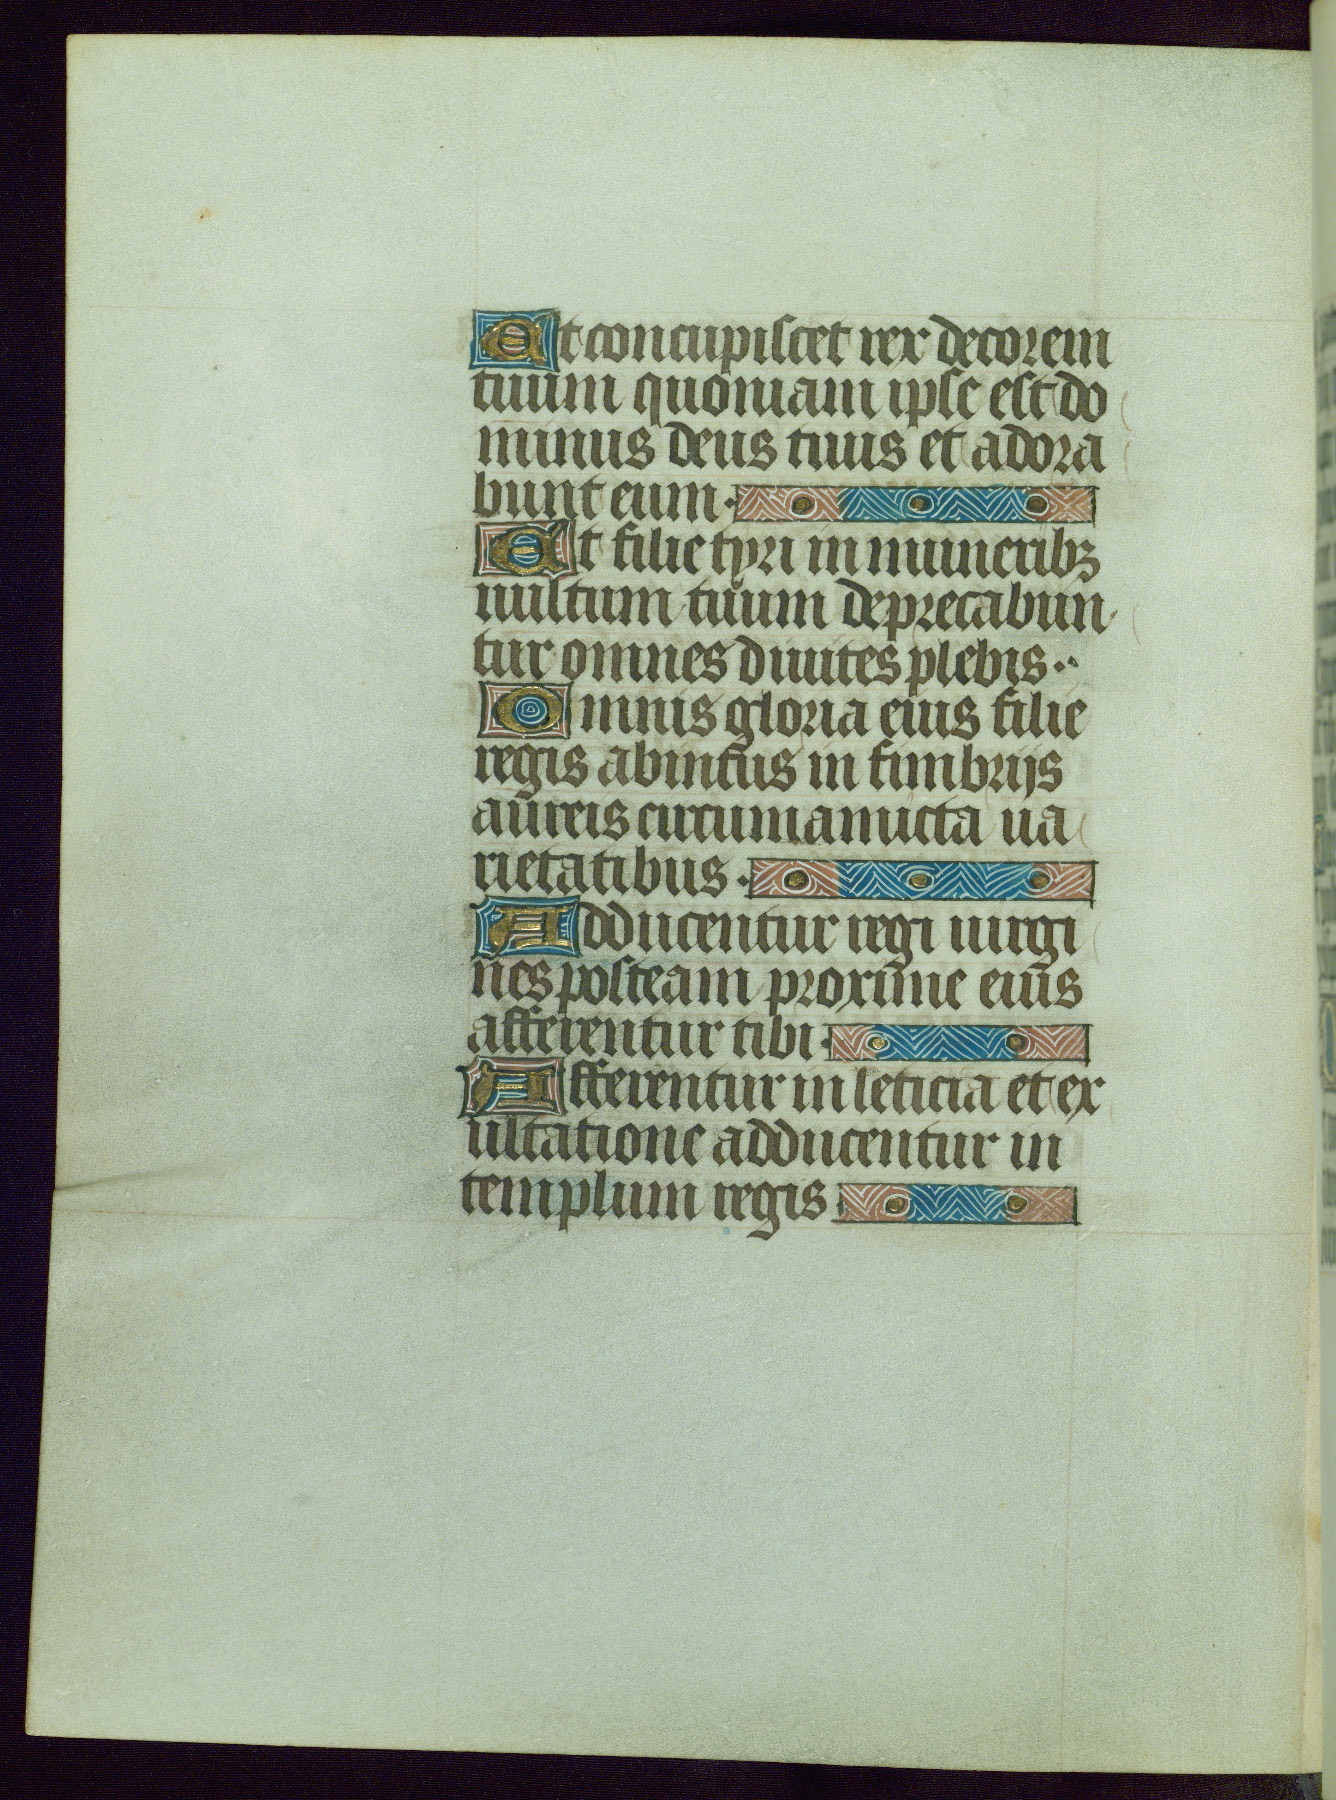 Et concupiscet rex decorem
tuum quoniam ipse est do
minus deus tuus et adora
bunt eum·
Et filie tyri in muneribꝫ
uultum tuum deprecabun
tur omnes diuites plebis··
Omnis gloria eius filie
regis abintus in fimbrijs
aureis circumamicta ua
rietatibus·
Adducentur regi uirgi
nes post eam proxime eius
afferentur tibi·
Afferentur in leticia et ex
ultatione adducentur in
templum regis